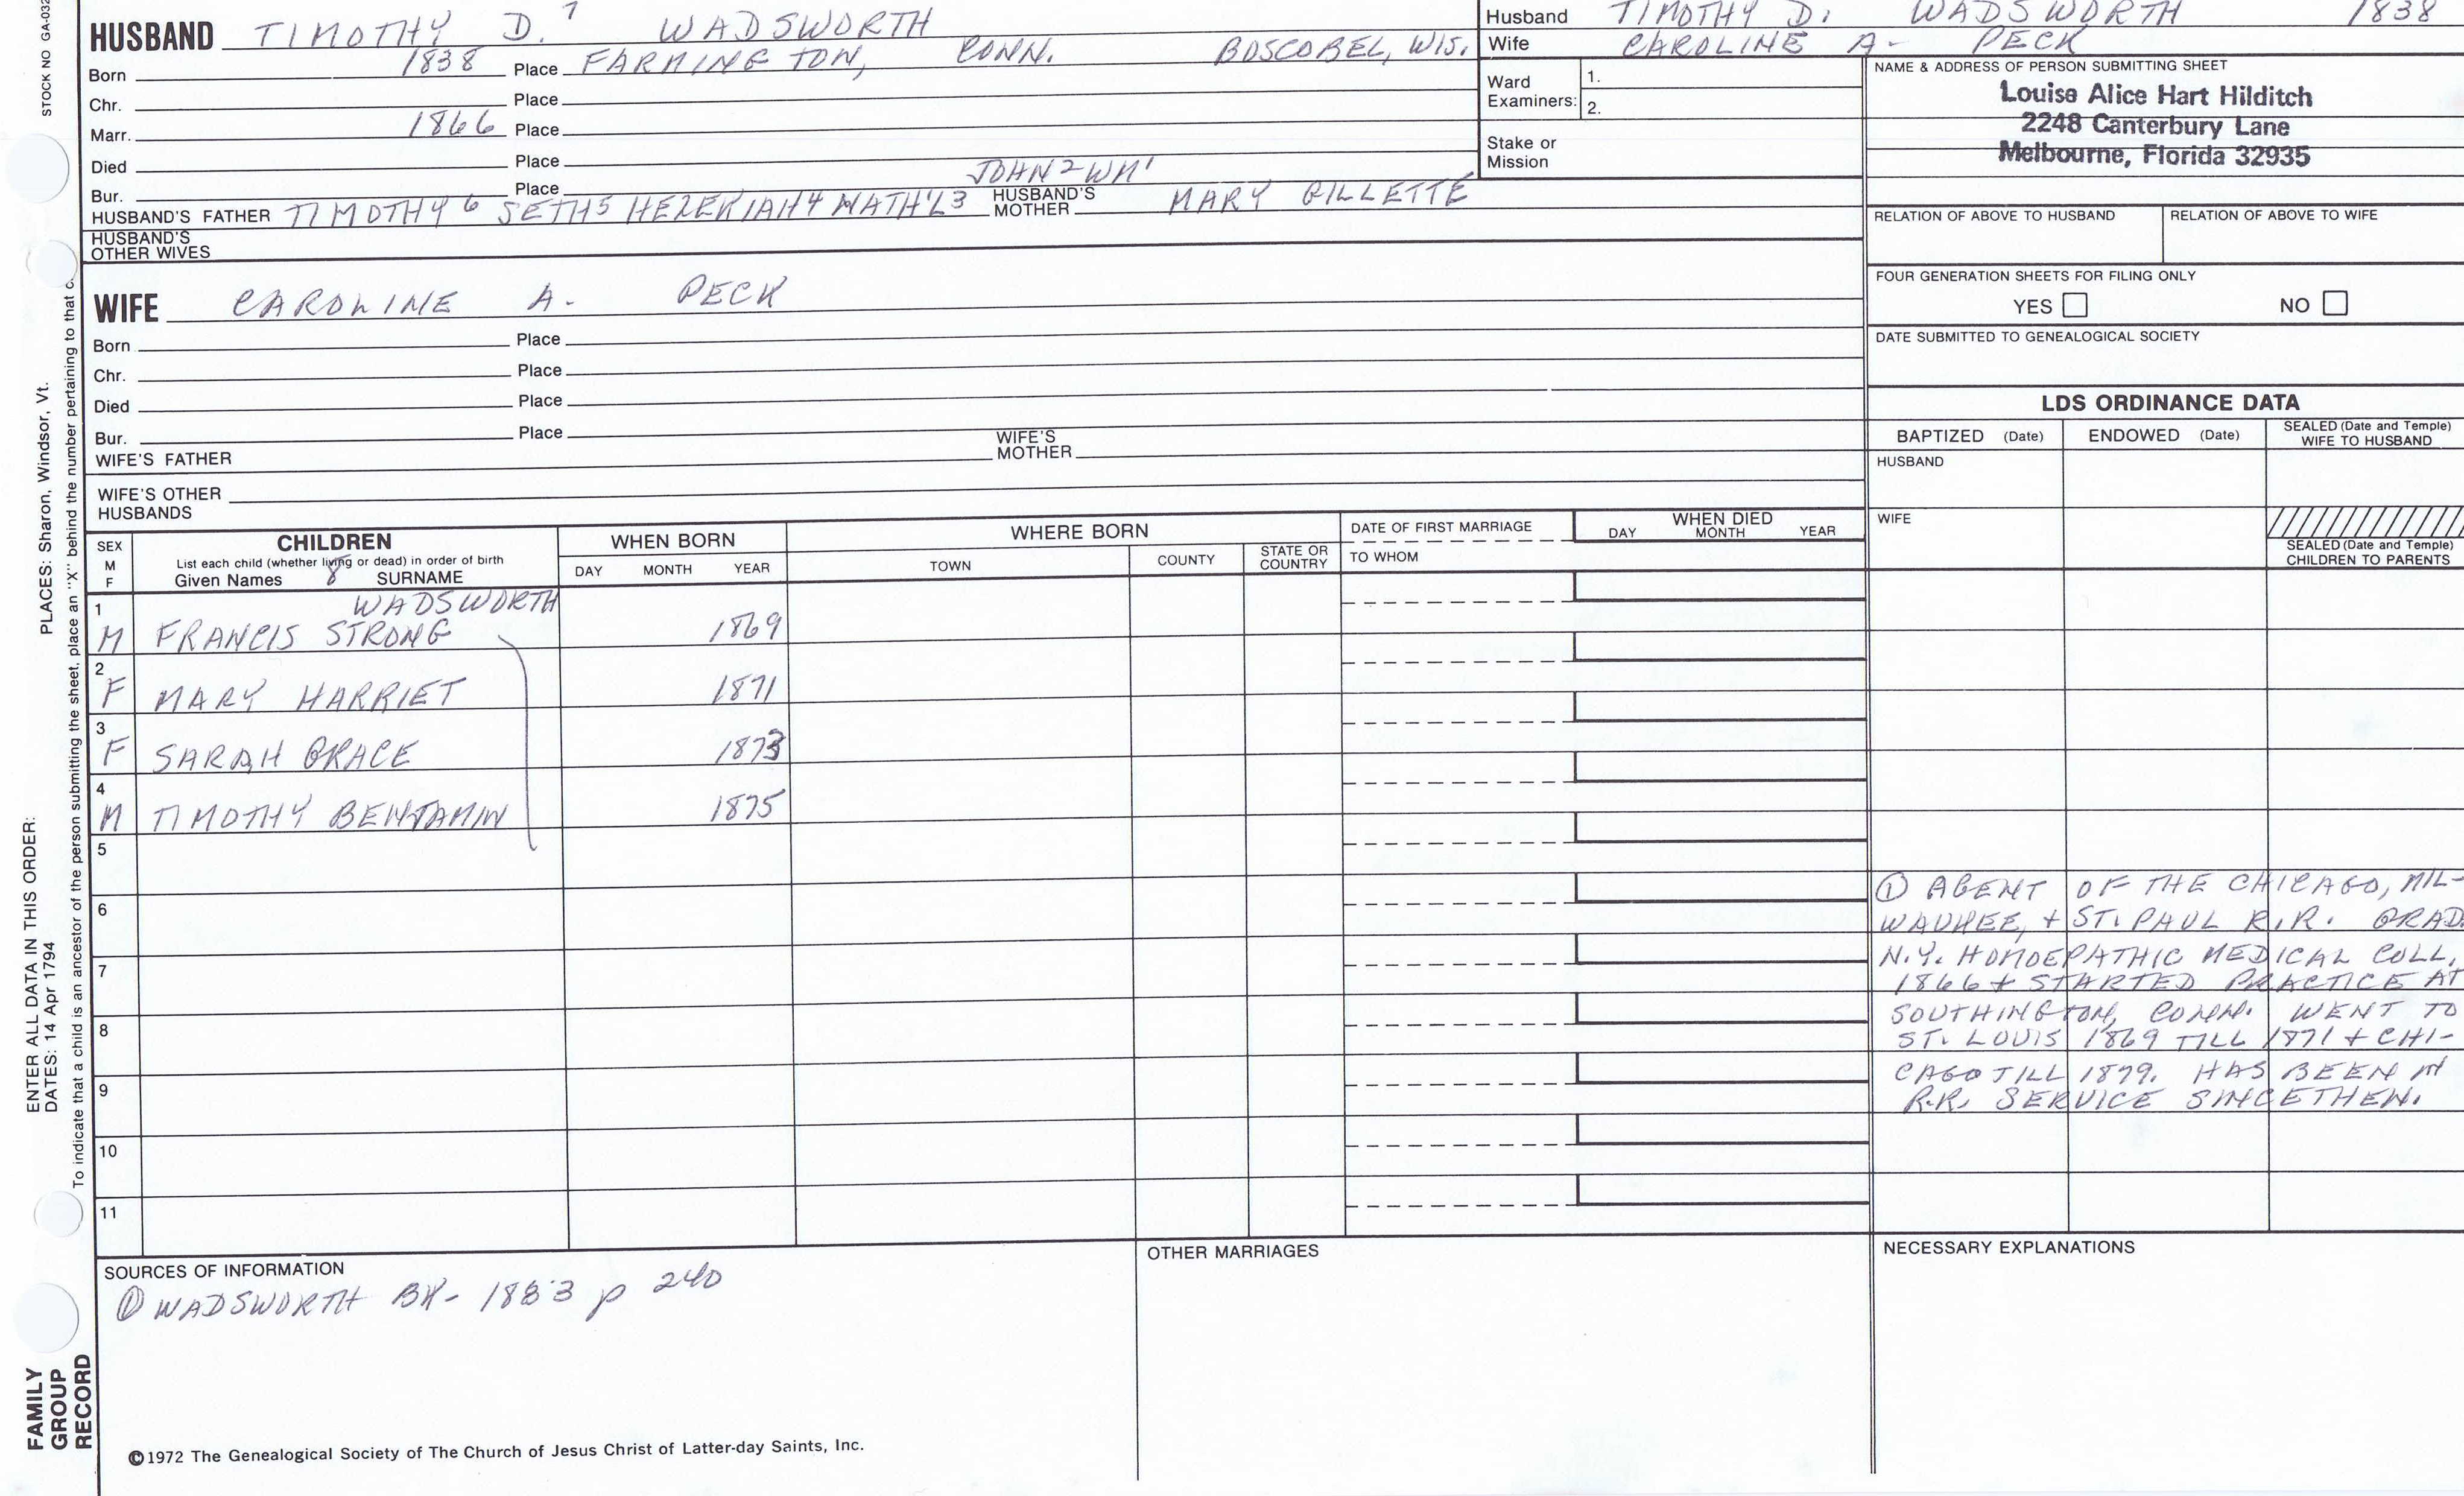 STOCK NO GA-032
HUSBAND TIMOTHY D. 7 WADSWORTH
Born 1838 Place FARMINGTON, CONN. BOSCOBEL, WIS.
Chr. Place
Marr. 1866 Place
Died Place
JOHN2 WM1
Bur. Place
HUSBAND'S FATHER TIMOTHY6 SETH5 HEZEKIAH4 NATH'L3 HUSBAND'S MOTHER MARY GILLETTE
HUSBAND'S
OTHER WIVES
WIFE CAROLINE A. PECK
Born Place
Chr. Place
Died Place
Bur. Place
WIFE'S FATHER WIFE'S MOTHER
WIFE'S OTHER
HUSBANDS
Husband TIMOTHY D. WADSWORTH 1838
Wife CAROLINE A- PECK
Ward
Examiners: 1.
2.
Stake or
Mission
NAME & ADDRESS OF PERSON SUBMITTING SHEET
Louise Alice Hart Hilditch
2248 Canterbury Lane
Melbourne, Florida 32935
RELATION OF ABOVE TO HUSBAND RELATION OF ABOVE TO WIFE
FOUR GENERATION SHEETS FOR FILING ONLY
YES NO
DATE SUBMITTED TO GENEALOGICAL SOCIETY
LDS ORDINANCE DATA
BAPTIZED (Date) ENDOWED (Date) SEALED (Date and Temple)
WIFE TO HUSBAND
HUSBAND
WIFE
SEALED (Date and Temple)
CHILDREN TO PARENTS
SEX
M
F
CHILDREN
List each child (whether living or dead) in order of birth
Given Names 8 SURNAME
WHEN BORN
DAY MONTH YEAR
WHERE BORN
TOWN COUNTY STATE OR
COUNTRY
DATE OF FIRST MARRIAGE
TO WHOM
WHEN DIED
DAY MONTH YEAR
1 WADSWORTH
M FRANCIS STRONG 1869
2
F MARY HARRIET 1871
3
F SARAH GRACE 1873
4
M TIMOTHY BENJAMIN 1875
5
6
7
8
9
10
11
① AGENT OF THE CHICAGO, MIL-
WAUKEE, + ST. PAUL R.R. GRAD.
N.Y. HOMOEPATHIC MEDICAL COLL.
1866 + STARTED PRACTICE AT
SOUTHINGTON, CONN. WENT TO
ST. LOUIS 1869 TILL 1871 + CHI-
CAGO TILL 1879. HAS BEEN IN
R.R. SERVICE SINCE THEN.
SOURCES OF INFORMATION
① WADSWORTH BK- 1883 p 240
OTHER MARRIAGES
NECESSARY EXPLANATIONS
©1972 The Genealogical Society of The Church of Jesus Christ of Latter-day Saints, Inc.
FAMILY
GROUP
RECORD
ENTER ALL DATA IN THIS ORDER:
DATES: 14 Apr 1794
PLACES: Sharon, Windsor, Vt.
To indicate that a child is an ancestor of the person submitting the sheet, place an "X" behind the number pertaining to that c